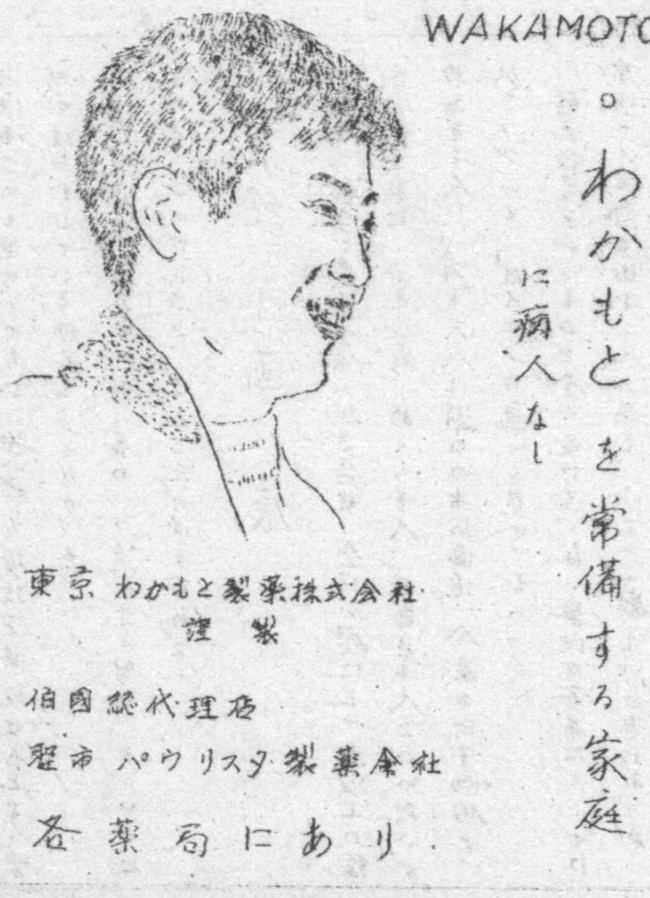 WAKAMOTO
。わかもとを常備する家庭
に病人なし
東京 わかもと製薬株式会社
謹製
伯國総代理店
聖市 パウリスタ製薬會社
各薬局にあり.